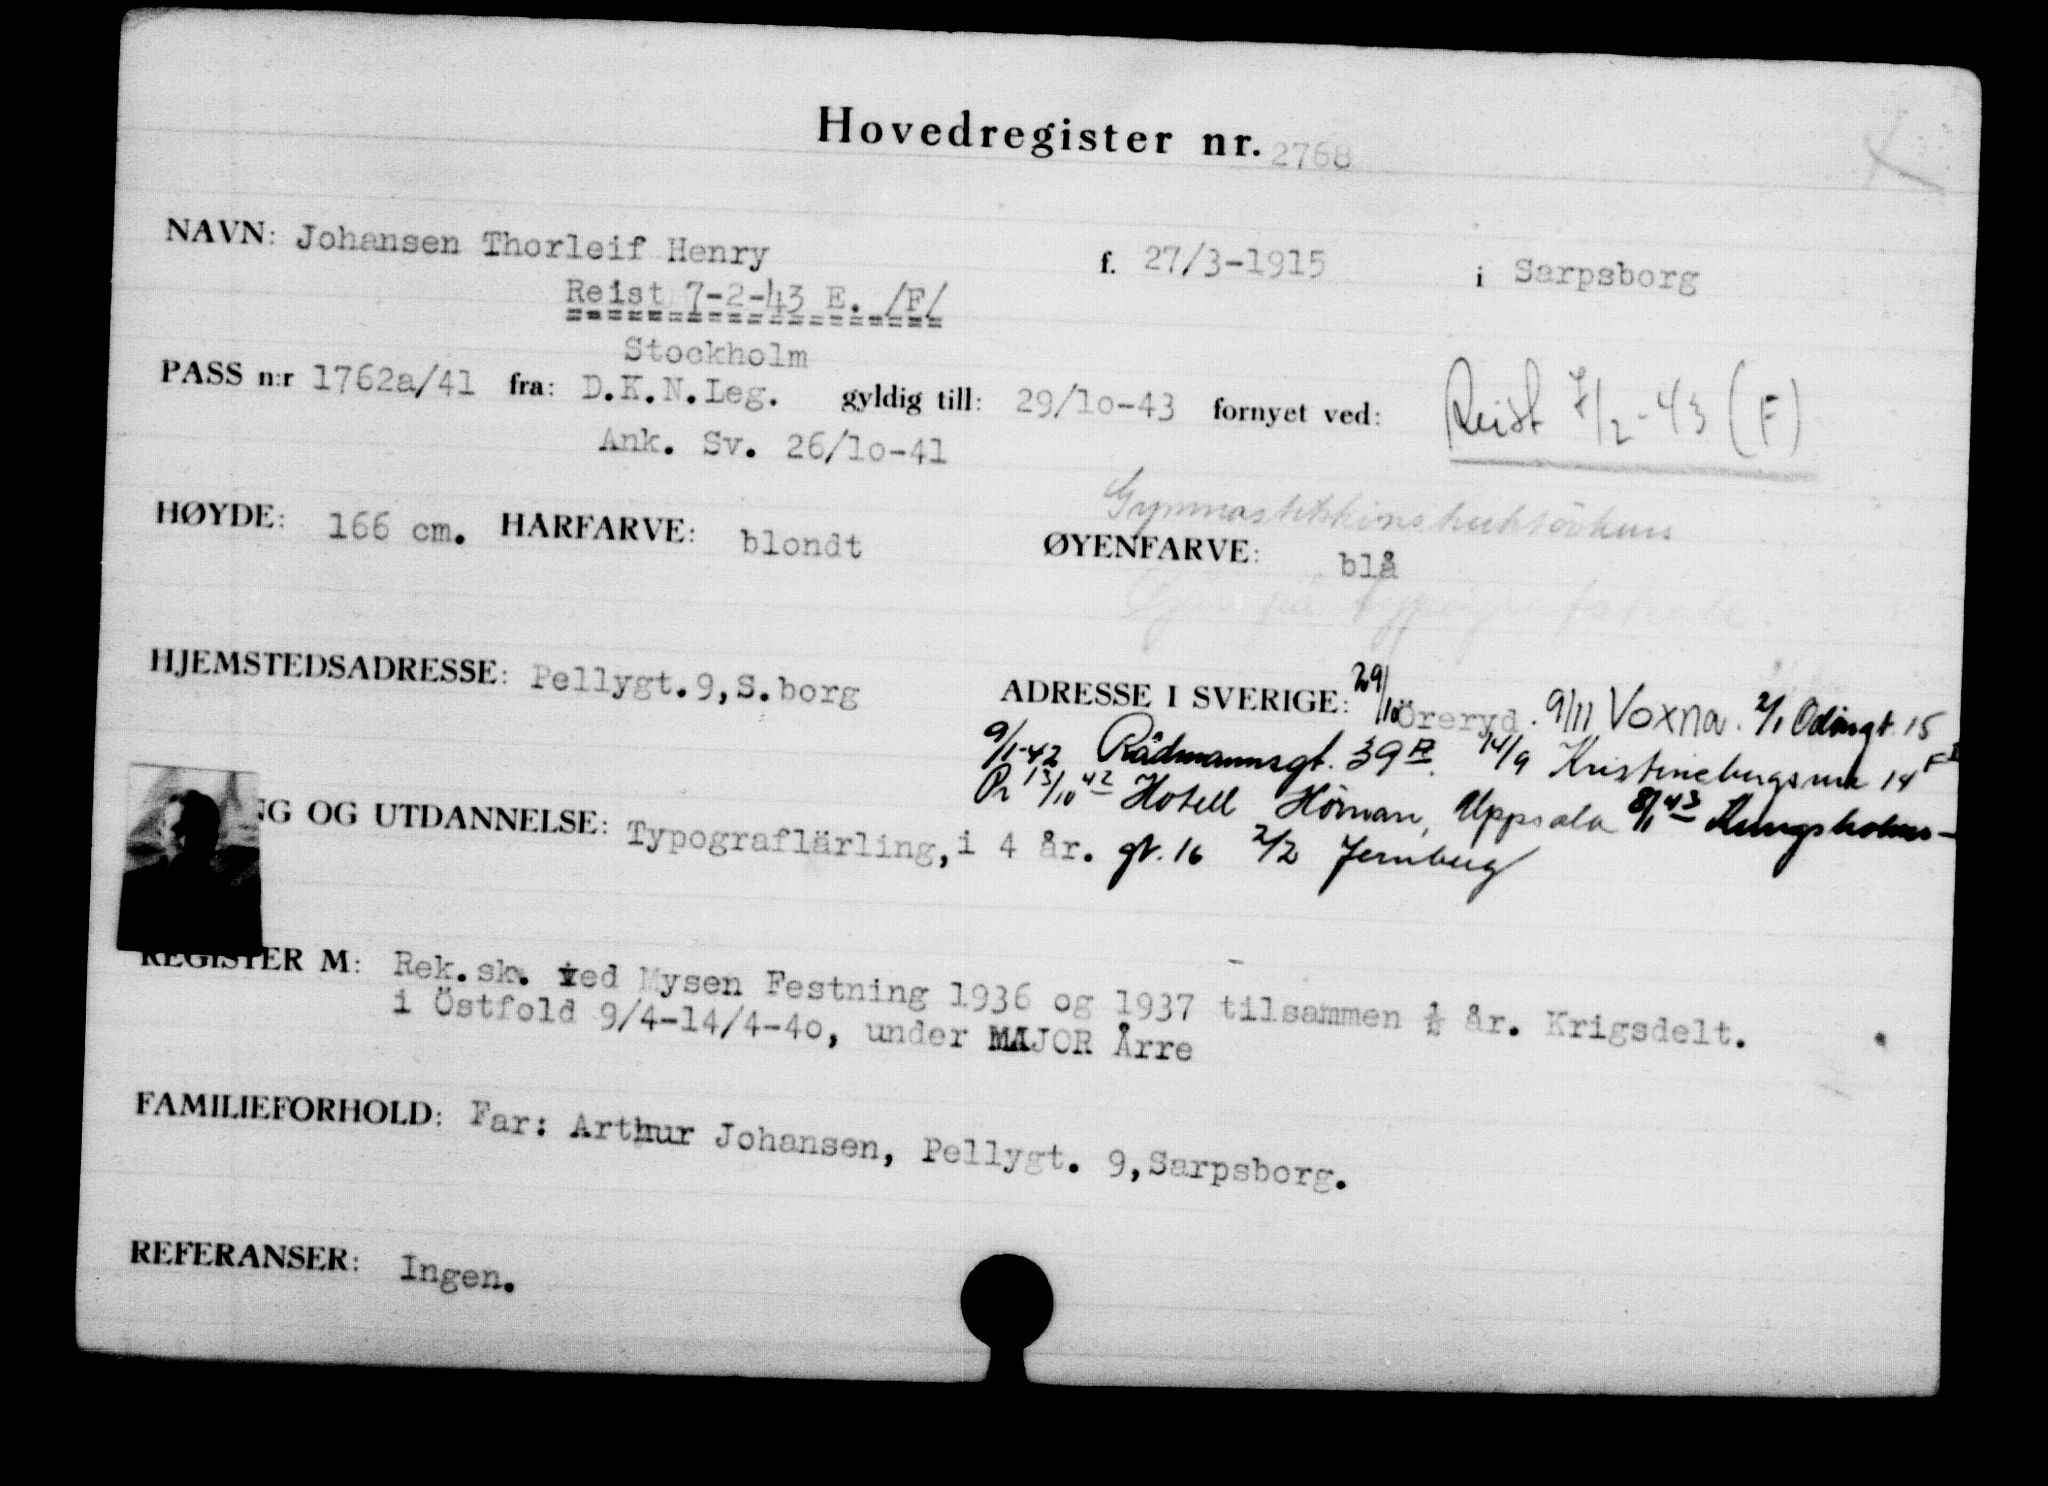 Hovedregister nr. 2768
NAVN: Johansen Thorleif Henry f. 27/3-1915 i Sarpsborg
Reist 7-2-43 E. /F/
Stockholm
PASS n:r 1762a/41 fra: D.K.N.Leg. gyldig till: 29/1o-43 fornyet ved: Reist 7/2-43 (F)
Ank. Sv. 26/1o-41
Gymnastikkinstruktörkurs
HØYDE: 166 cm. HARFARVE: blondt ØYENFARVE: blå
HJEMSTEDSADRESSE: Pellygt.9,S.borg ADRESSE I SVERIGE: 29/10 Öreryd. 9/11 Voxna. 2/1 Odingt 15
9/1-42 Rådmannsgt. 39 14/9 Kristinebergsv 14
Pr 13/10 42 Hotell Hörnan, Uppsala 8/1 43 Kungsholms-
NG OG UTDANNELSE: Typograflärling,i 4 år. gt. 16 2/2 Jernberg
REGISTER M: Rek.sk. ved Mysen Festning 1936 og 1937 tilsammen ½ år. Krigsdelt.
i Östfold 9/4-14/4-4o, under MAJOR Årre
FAMILIEFORHOLD: Far: Arthur Johansen, Pellygt. 9,Sarpsborg.
REFERANSER: Ingen.